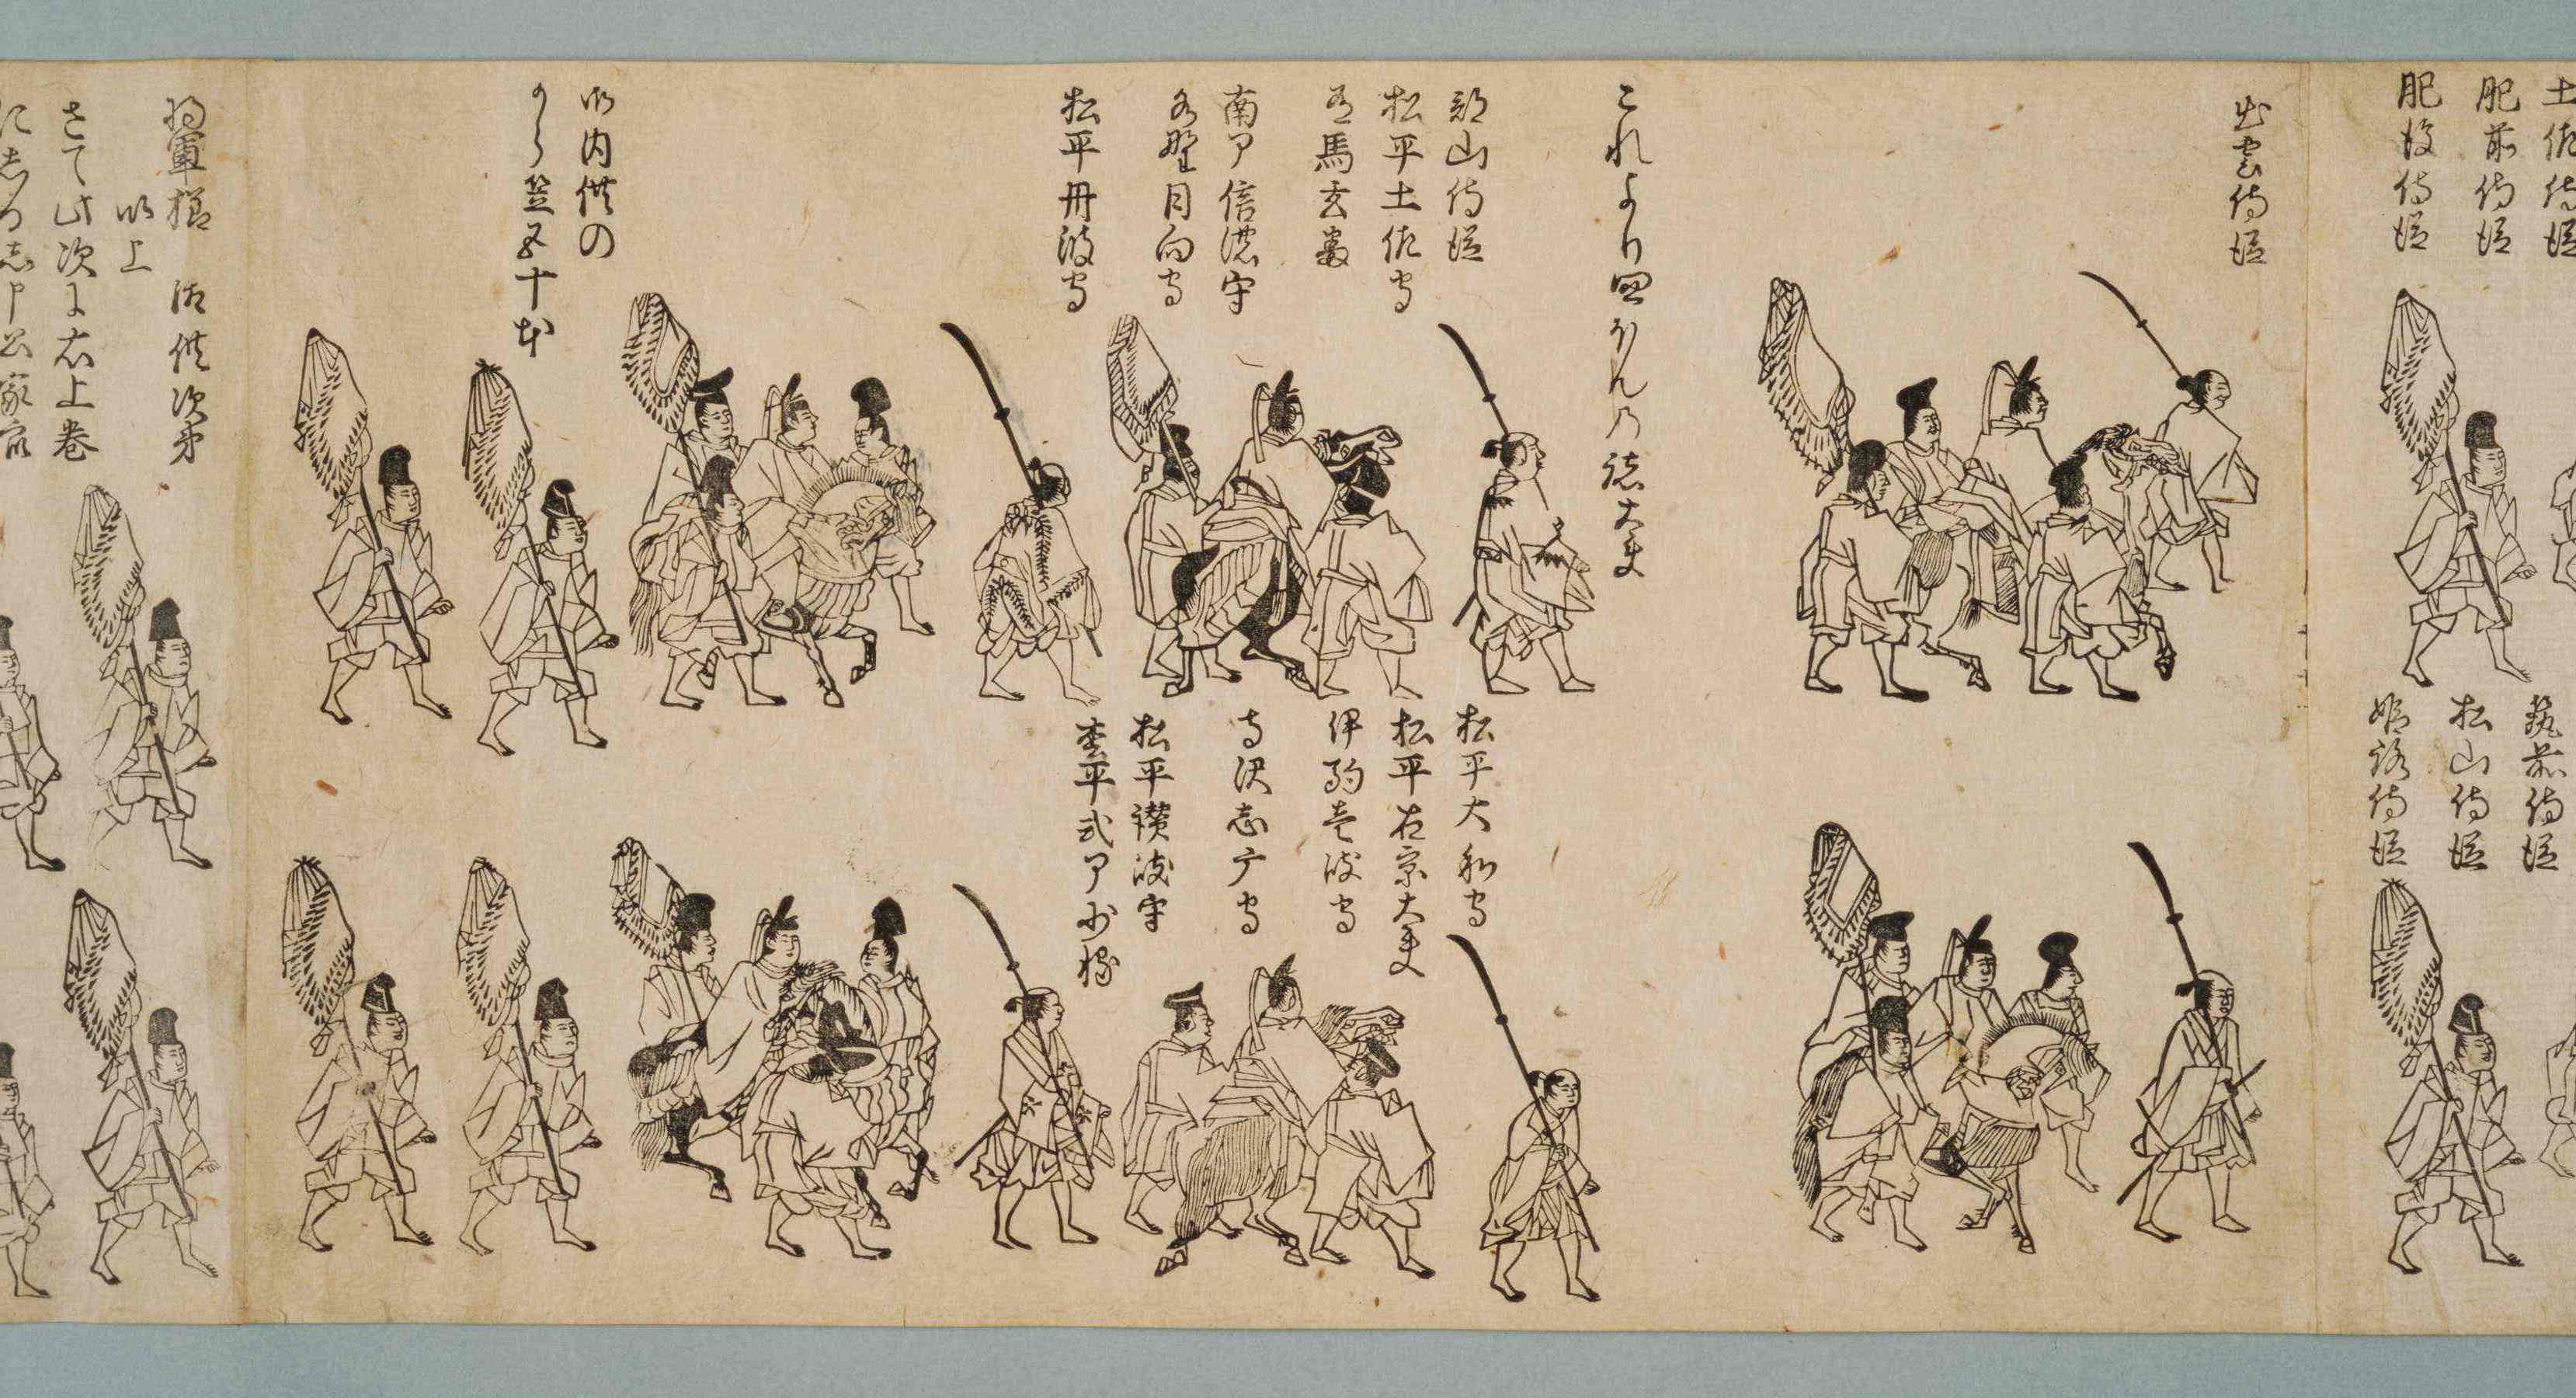 土佐侍従
肥前侍従
肥後侍従
松山侍従
姫路侍従
出雲侍従
これより四ほんの諸大夫
郡山侍従
松平土佐守
有馬玄蕃
南部信濃守
水野日向守
松平丹波守
松平大和守
松平右京大夫
伊駒壱岐守
寺沢志广守
松平讃岐守
松平式部少輔
御内供の
から笠五十本
将軍様 御供次第
以上
さて此次に右上巻
にしるし申公家衆